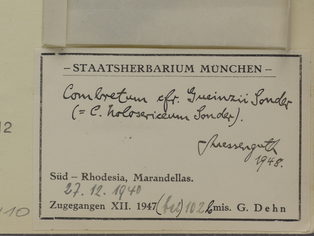 – STAATSHERBARIUM MÜNCHEN –
Combretum cfr. Gueinzii Sonder
(= C. holosericeum Sonder).
Suessenguth
1948.
Süd – Rhodesia, Marandellas.
27. 12. 1940
Zugegangen XII. 1947 mis. G. Dehn
12
10